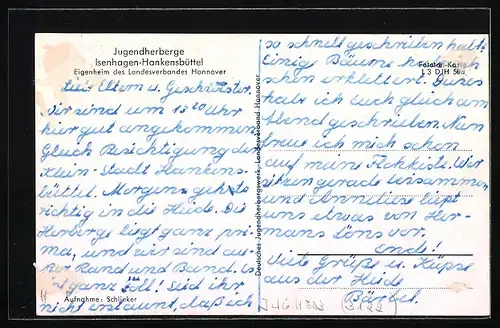 Jugendherberge
Isenhagen-Hankensbüttel
Eigenheim des Landesverbandes Hannover
Liebe Eltern u. Geschwister.
Wir sind um 13 20 Uhr
hier gut angekommen.
Gleich Besichtigung der
Klein-Stadt Hankens-
büttel. Morgens geht's
richtig in die Heide. Die
Herberge liegt ganz pri-
ma, und wir sind au-
ßer Rand und Band. Es
ist ganz toll! Seid ihr
nicht erstaunt, daß ich
Aufnahme: Schlieker
Deutsches Jugendherbergswerk, Landesverband Hannover
so schnell geschrieben habe?
Einige Bäume
schon erklettert.
halb ich euch gleich am
Abend geschrieben. Nun
freue ich mich schon
auf meine Flohkiste. Wir
sitzen gerade beisammen
und Anneliese liest
uns etwas von Her-
manns Löns vor.
Ende!
Viele Grüße u. Küsse
aus der Heide
Bärbel.
L 3 DJH 50a